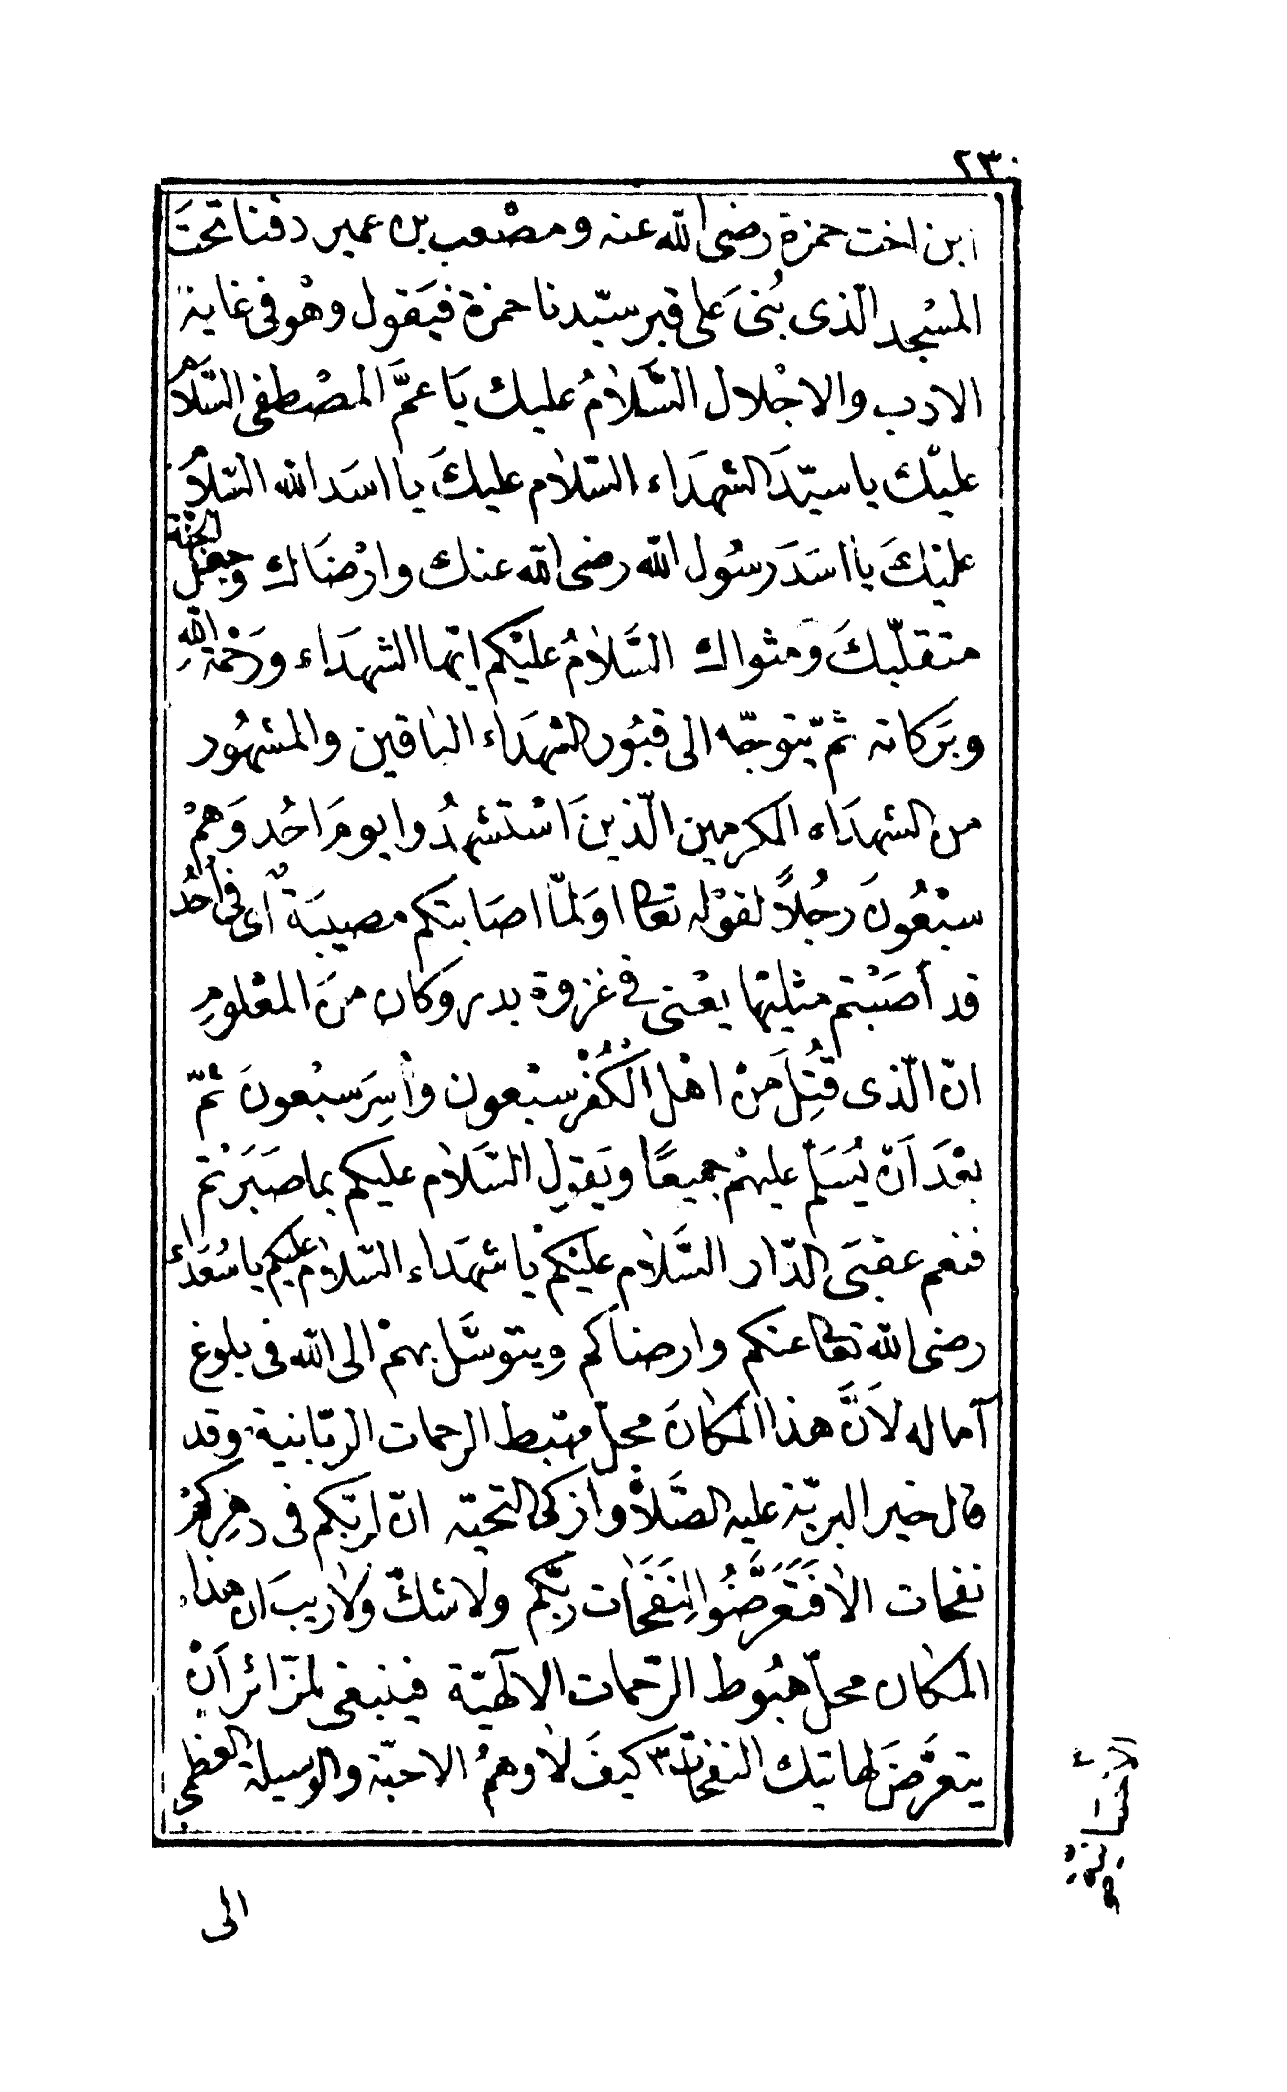 ٢٣٠
ابن اخت حمزة رضى الله عنه ومصْعب بن عمير دفنا تحتَ
المسْجد الّذى بُنىَ على قبر سيّدنا حمزة فيَقول وهْو فى غاية
الادب والاجْلال السَّلامُ عليك يَا عمَّ المصْطفى السّلامُ
عليْك يا سيّدَ الشهَداء السّلام عليكَ يا اسَد الله السّلامُ
عليْكَ يا اسَدَ رسُول الله رضى الله عنك وارْضَاك وجعل الجنّة
متقلّبكَ وَمثواك السَّلامُ عليْكم ايّها الشهَداء ورَحْمة اللهِ
وبَركاته ثمّ يتوجّه الى قبُور الشهَداء الباقين والمشهُور
من الشهدَاء المكرمين الّذينَ اسْتشهدُوا يومَ احُد وَهمْ
سبْعُونَ رَجُلاً لقوْله تعالى اوَلمّا اصَابتكم مصيبَةٌ اى فى احُد
قد أصَبْتم مثليْها يعْنى فى غزوة بدر وكان منَ المعْلومِ
انّ الّذى قُتِلَ منْ اهْل الكُفْر سبْعون وأسِرَ سبْعونَ ثمّ
بعْدَ اَنْ يُسَلّم عليهمْ جميعًا ويَقول السَّلام عليكم بما صبَرْتم
فنعم عقبَى الدّار السَّلام عليْكمْ يا شهَداء السّلام عليكم يا سُعَداء
رضى الله تعالى عنكم وارضاكم ويتوسَّل بهمْ الى الله فى بلوغ
آماله لاَنَّ هذا المكانَ محلّ مهبط الرحمات الربّانية وقد
قال خير البريّة عليه الصَّلاة وأزكى التحيّة انّ لربّكم فى دهرِكمْ
نفحات الا فَتَعَرَّضُوا لِنَفَحَات ربّكم ولا شكّ ولا ريبَ ان هذا
المكان محلّ هبُوط الرّحمات الالهيّة فينبغى لمزّائر اَنْ
يتعرَّضَ لهاتيك النفحات ٣ كيفَ لا وهمُ الاحبّة والوسيلة العظمى
الى